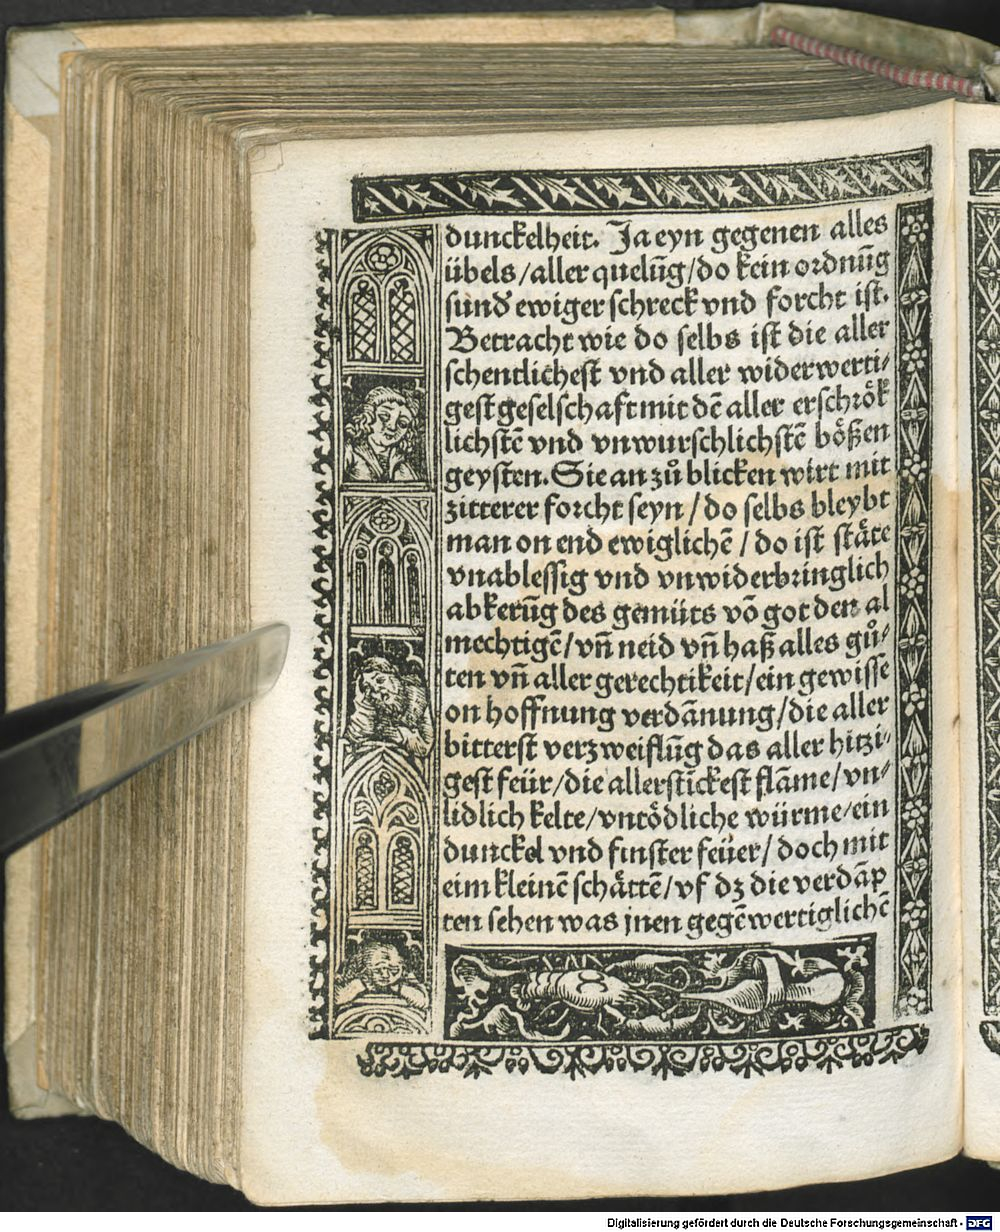 dunckelheit. Ja eyn gegenen alles
übels/aller quelūg/do kein ordnūg
sund̕ ewiger schreck vnd forcht ist.
Betracht wie do selbs ist die aller
schentlichest vnd aller widerwerti⸗
gest geselschaft mit dē aller erschrök
lichstē vnd vnwurschlichstē bößen
geysten. Sie an zů blicken wirt mit
zitterer forcht seyn/do selbs bleybt
man on end ewiglichē/do ist stäte
vnablessig vnd vnwiderbringlich
abkerūg des gemüts vō got den al
mechtigē/vn̄ neid vn̄ haß alles gů⸗
ten vn̄ aller gerechtikeit/ein gewisse
on hoffnung verdānung/die aller
bitterst verzweiflūg das aller hitzi⸗
gest feür/die allerstīckest flāme/vn⸗
lidlich kelte/vntödliche würme/ein
dunckel vnd finster feüer/doch mit
eim kleinē schättē/vf dz die verdāp
ten sehen was jnen gegēwertiglichē
Digitalisierung gefördert durch die Deutsche Forschungsgemeinschaft - DFG